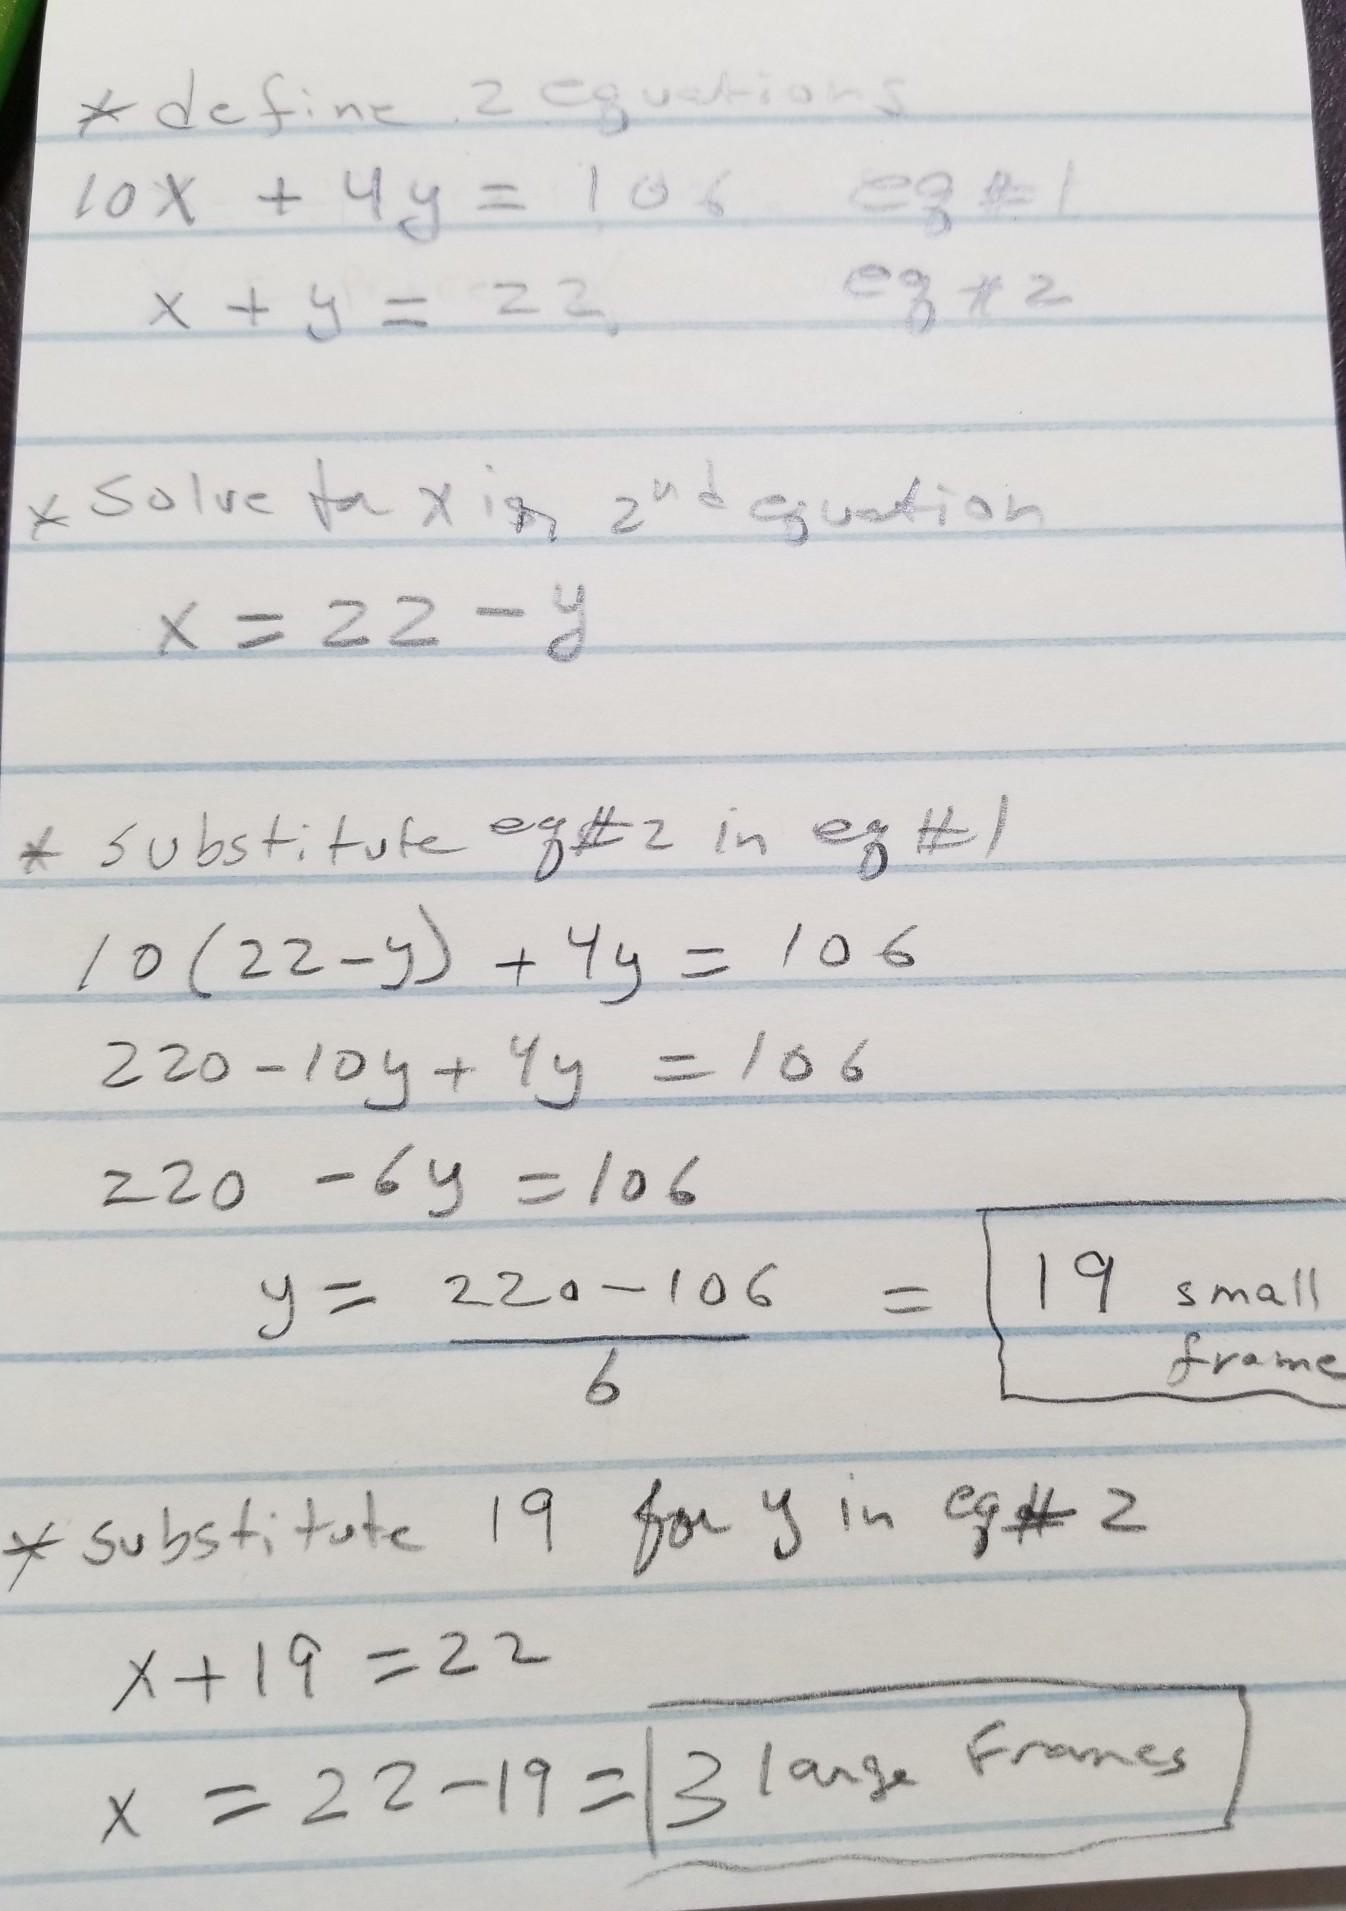 * define 2 equations
10x + 4y = 106 eq #1
x + y = 22 eq #2
* Solve for x in 2nd equation
x = 22 - y
* substitute eq #2 in eq #1
10(22-y) + 4y = 106
220 - 10y + 4y = 106
220 - 6y = 106
y = 220 - 106 = 19 small
6 frame
* substitute 19 for y in eq# 2
x + 19 = 22
x = 22 - 19 = 3 large Frames